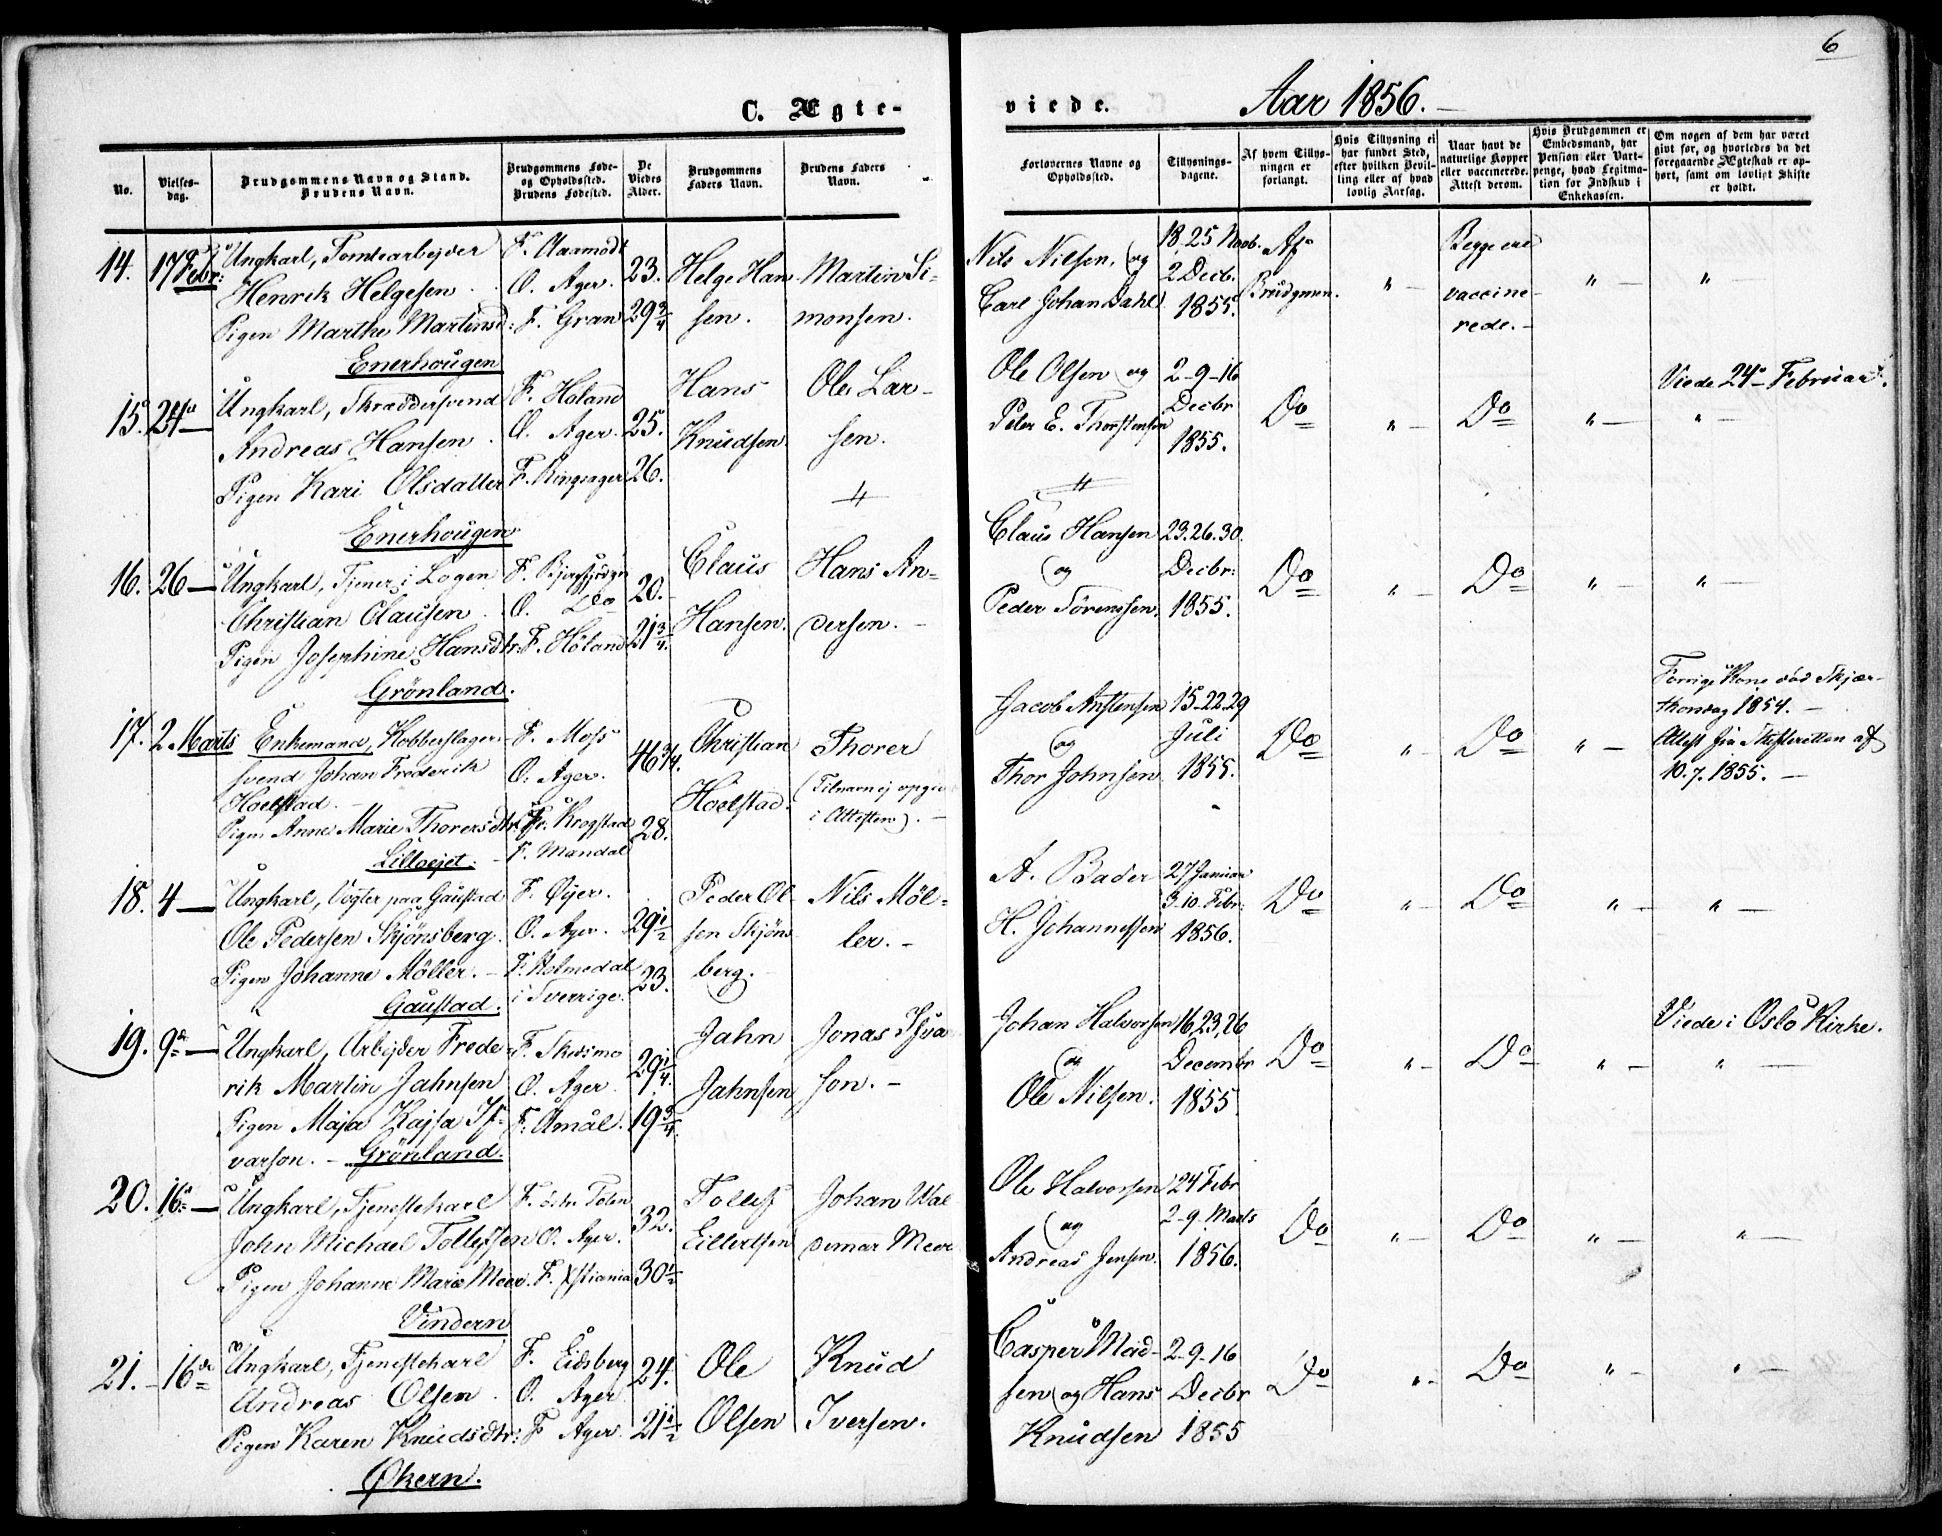 6
C. Ægte-
viede.
Aar 1856.
No.
Vielses-
dag.
Brudgommens Navn og Stand.
Brudens Navn.
Brudgommens Føde-
og Opholdssted.
Brudens Fødested.
De
Viedes
Alder.
Brudgommens
Faders Navn.
Brudens Faders
Navn.
Forlovernes Navne og
Opholdssted.
Tillysnings-
dagene.
Af hvem Tillys-
ningen er
forlangt.
Hvis Tillysning ei
har fundet Sted,
efter hvilken Bevil-
ling eller af hvad
lovlig Aarsag.
Naar havt de
naturlige Kopper
eller vaccinerede.
Attest derom.
Hvis Brudgommen er
Embedsmand, har
Pension eller Vart-
penge, hvad Legitima-
tion for Indskud i
Enkekassen.
Om nogen af dem har været
givt før, og hvorledes da det
foregaaende Ægteskab er op-
hørt, samt om lovligt Skifte
er holdt.
14. 17 Febr:
Ungkarl, Tomtearbejder
Henrik Helgesen
Pigen Marthe Martinsd:
Enerhougen
F. Aaamodt
O. Ager.
F. Gran
23.
29 3/4
Helge Han-
sen.
Martin Si-
monsen.
Nils Nilsen, og
Carl Johan Dahl
18. 25 Novb.
2 Decb.
1855.
Af
Brudgmen.
" —
Begge ere
vaccine-
rede. -
" —
"
15. 24de —
Ungkarl, Skræddersvend
Andreas Hansen
Pigen Kari Olsdatter
Enerhougen
F. Høland
O. Ager.
F. Ringsager
25.
26.
Hans
Knudsen
Ole Lar-
sen.
Ole Olsen og
Peter E. Thorstensen
2-9-16
Decbr
1855.
Do
" —
Do
" —
Viede 24de Februar.
" —
16. 26 —
Ungkarl, Tjener i Logen
Christian Clausen
Pigen Josephine Hansdtr:
Grönland.
O. Do
F. Höland
20.
21 3/4.
Claus
Hansen.
Hans An-
dersen. -
Claus Hansen
og
Peder Sörenssen.
23.26.30.
Decbr:
1855.
Do
" —
Do
" —
" —
17. 2 Marts
Enkemand, Kobberslager-
svend Johan Frederik
Hoelstad. -
Pigen Anne Marie Thorersdtr
Lilloejet.
F. Moss
O. Ager.
Fr: Krogstad
F. Mandal
46 3/4.
28.
Christian
Hoelstad.
Thorer
(Tilnavn ej opgivet
i Attesten). -
Jacob Anstensen
og
Thor Johnsen
15-22-29
Juli
1855.
Do
" —
Do
" —
Forrige Kone död Skjær-
thorsdag 1854. -
Attest fra Skifteretten af
10.7.1855. -
18. 4 —
Ungkarl, Vogter paa Gaustad
Ole Pedersen Skjönsberg.
Pigen Johanne Möller. -
Gaustad.
F. Öyer.
O. Ager.
F. Holmedal
i Sverrige.
29 1/2
23.
Peder Ol-
sen Skjöns-
berg.
Nils Möl-
ler. -
A. Bader
H. Johannessen
27 Januar
3-10. Febr:
1856.
Do
" —
Do
" —
" —
19. 9de —
Ungkarl, Arbejder Frede-
rik Martin Jahnsen
Pigen Maja Kajsa Is-
varson. - Grönland.
F. Skedsmo
O. Ager
F. Åmål.
29 1/4.
19 3/4.
Jahn
Jahnsen
Jonas Isva
son. -
Johan Halvorsen
og
Ole Nilsen.
16,23,26
Decembr
1855.
Do
" —
Do
" —
Viede i Oslo Kirke.
" —
20. 16de —
Ungkarl, Tjenestekarl
John Michael Tollefsen
Pigen Johanne Marie Meer.
Vindern
F. östr Toten
O. Ager.
F. Xstiania
32.
30 1/2
Tollef
Eilertsen
Johan Wal
demar Meer
Ole Halvorsen
og
Andreas Jensen.
24 Febr
2-9. Marts
1856.
Do
" —
Do
" —
" —
21. 16de
Ungkarl, Tjenestekarl
Andreas Olsen
Pigen Karen Knudsdtr:
Økern.
F. Eidsberg
O. Ager
F Ager.
24.
21 1/2
Ole
Olsen
Knud
Iversen.
Casper Mad-
sen og Hans
Knudsen
2-9-16
Decbr
1855
Do
" -
Do
" —
" —